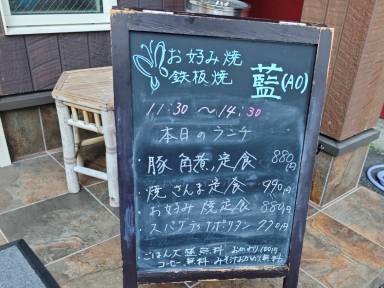 お好み焼
鉄板焼 藍(AO)
11:30 〜14:30
本日のランチ
・豚角煮定食 880円
・焼さんま定食 990円
・お好み焼定食 880円
・スパゲティナポリタン 770円
ごはん大盛無料 おかわり100円
コーヒー無料 みそ汁おかわり無料